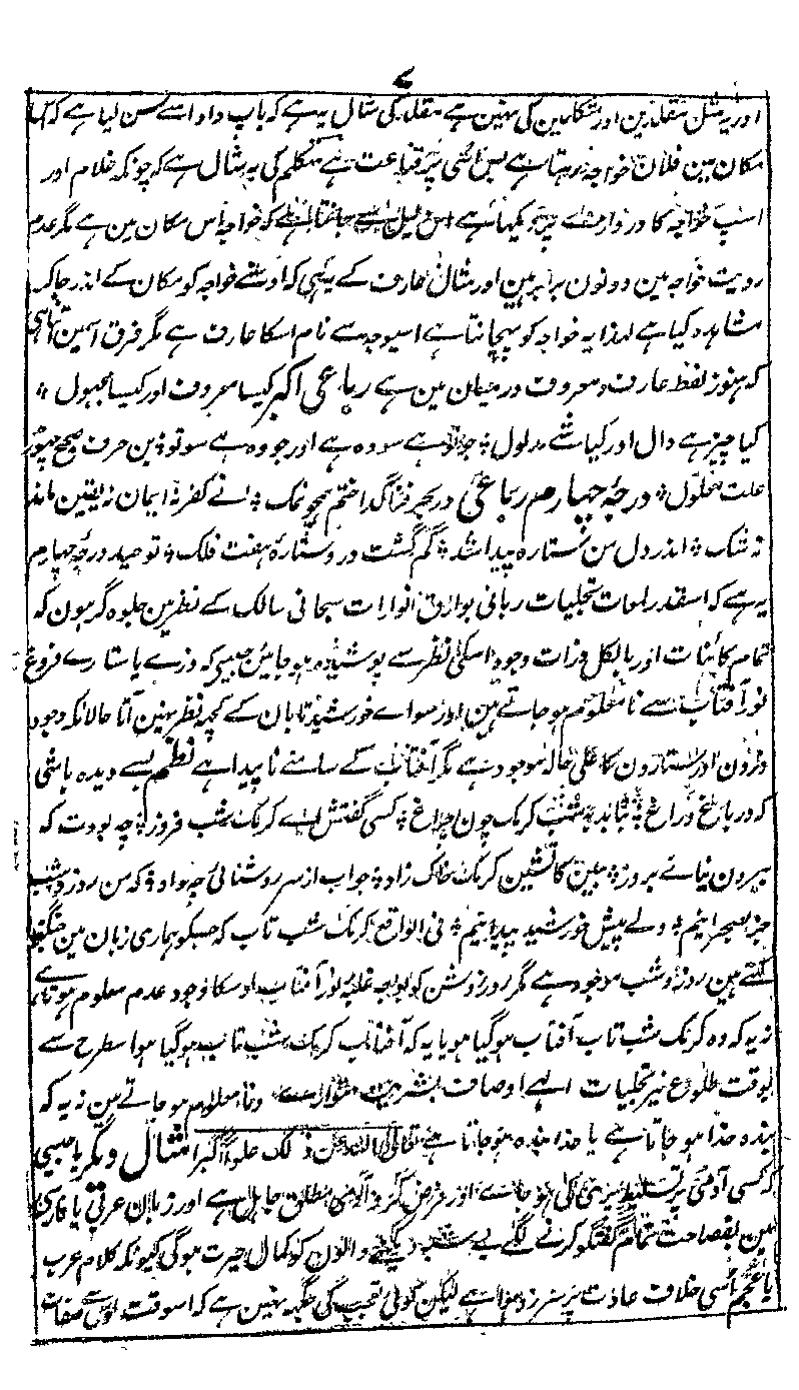 ۷
اور یہ مثل مقلدین اور متکلمین کی نہین ہے مقلد کی مثال یہ ہے کہ باپ دادا سے سن لیا ہے کہ اس
مکان مین فلان خواجہ رہتا ہے بس اتنی پر قناعت ہے متکلم کی یہ مثال ہے کہ چونکہ غلام اور
اسپ خواجہ کا دروازے پر دیکھا ہے اس دلیل سے جانتا ہے کہ خواجہ اس مکان مین ہے مگر عدم
رویت خواجہ مین دونون برابر ہین اور مثال عارف کے یہ ہی کہ اوسنے خواجہ کو مکان کے اندر جا کر
مشاہدہ کیا ہے لہذا یہ خواجہ کو پہچانتا ہے اسیوجہ سے نام اسکا عارف ہے مگر فرق اسمین اتنا ہی
کہ ہنوز لفظ عارف و معروف درمیان مین ہے رباعی اکبر کیسا معروف اور کیسا مجہول ؛
کیا چیز ہے دال اور کیا شے مدلول ؛ جو تو ہے سو وہ ہے اور جو وہ ہے سو تو ؛ ین حرف صحیح چھوڑ
علت معلول ؛ درجۂ چہارم رباعی در بحر فنا گداختم ہمچو نمک ؛ نے کفر نہ ایمان نہ یقین ماند
نہ شک ؛ اندر دل من ستارہ پیدا شد ؛ گم گشت در و ستارۂ ہفت فلک ؛ توحید درجۂ چہارم
یہ ہے کہ اسقدر لمعات تجلیات ربانی بوارق انوارات سبحانی سالک کے نظر مین جلوہ گر ہون کہ
تمام کائنات اور بالکل ذرات وجود اسکی نظر سے پوشیدہ ہو جائین جیسی کہ ذرے یا ستارے فروغ
نور آفتاب سے نا معلوم ہو جاتے ہین اور سواے خورشید تابان کے کچھ نظر نہین آتا حالانکہ وجود
ذرون اور ستارون کا علی حالہ موجود ہے مگر آفتاب کے سامنے نا پیدا ہے نظم بسے دیدہ باشی
کہ در باغ و راغ ؛ بتابد بہ شب کرمک چون چراغ ؛ کسی گفتش اے کرمک شب فروز ؛ چہ بودت کہ
بیرون نیائے بروز ؛ ببین کاتشین کرمک خاک زاد ؛ جواب از سر روشنائی چہ داد ؛ کہ من روز و شب
جز بصحرا نیم ؛ ولے پیش خورشید پیدا نیم ؛ فی الواقع کرمک شب تاب کہ جسکو ہماری زبان مین جگنو
کہتے ہین روز و شب موجود ہے مگر روز روشن کو بوجہ غلبہ نور آفتاب اوسکا وجود عدم معلوم ہوتا ہے
نہ یہ کہ وہ کرمک شب تاب آفتاب ہو گیا ہو یا یہ کہ آفتاب کرمک شب تاب ہو گیا ہو اسطرح سے
بوقت طلوع نیر تجلیات الہے اوصاف بشریت و نا معلوم ہو جاتے ہین نہ یہ کہ
بندہ خدا ہو جاتا ہے یا خدا بندہ ہو جاتا ہے تعالی اللہ عن ذلک علوا کبیرا مثال دیگر یا جیسی
کہ کسی آدمی پر تسلیط پری کی ہو جائے اور فرض کرو آدمی مطلق جاہل ہے اور زبان عربی یا فارسی
مین بفصاحت تمام گفتگو کرنے لگے بے شب دیکھنے والون کو کمال حیرت ہوگی کیونکہ کلام عرب
یا عجم اُسی خلاف عادت پر سرزد ہوا ہے لیکن کوئی تعجب کی جگہ نہین ہے کہ اسوقت اوس سے صفات